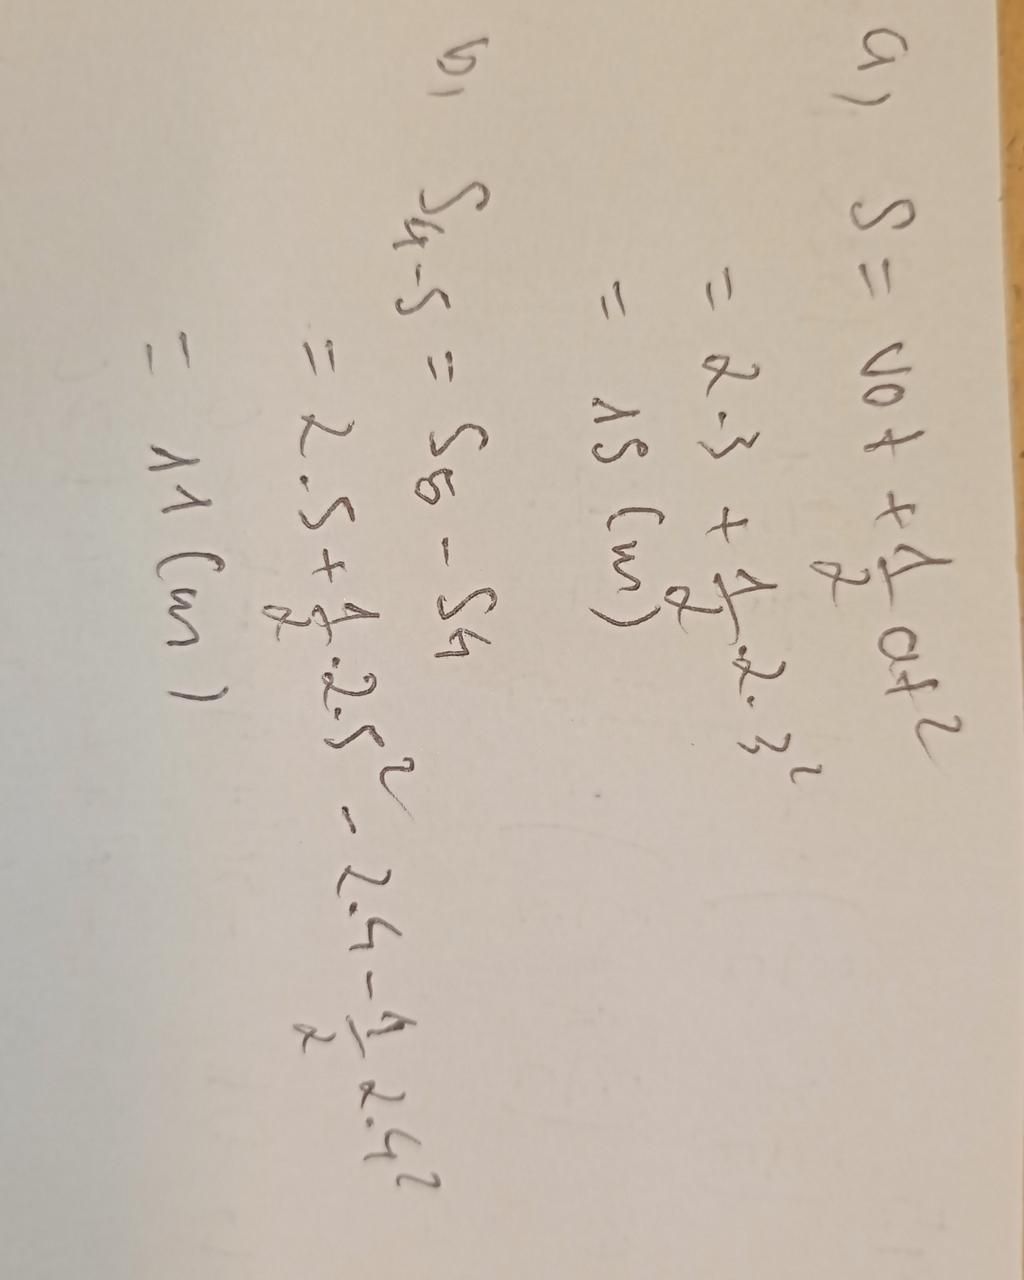 a) S = vot + 1/2 at²
= 2.3 + 1/2 .2.3²
= 15 (m)
b, S4-5 = S5 - S4
= 2.5 + 1/2 .2.5² - 2.4 - 1/2 2.4²
= 11 (m)